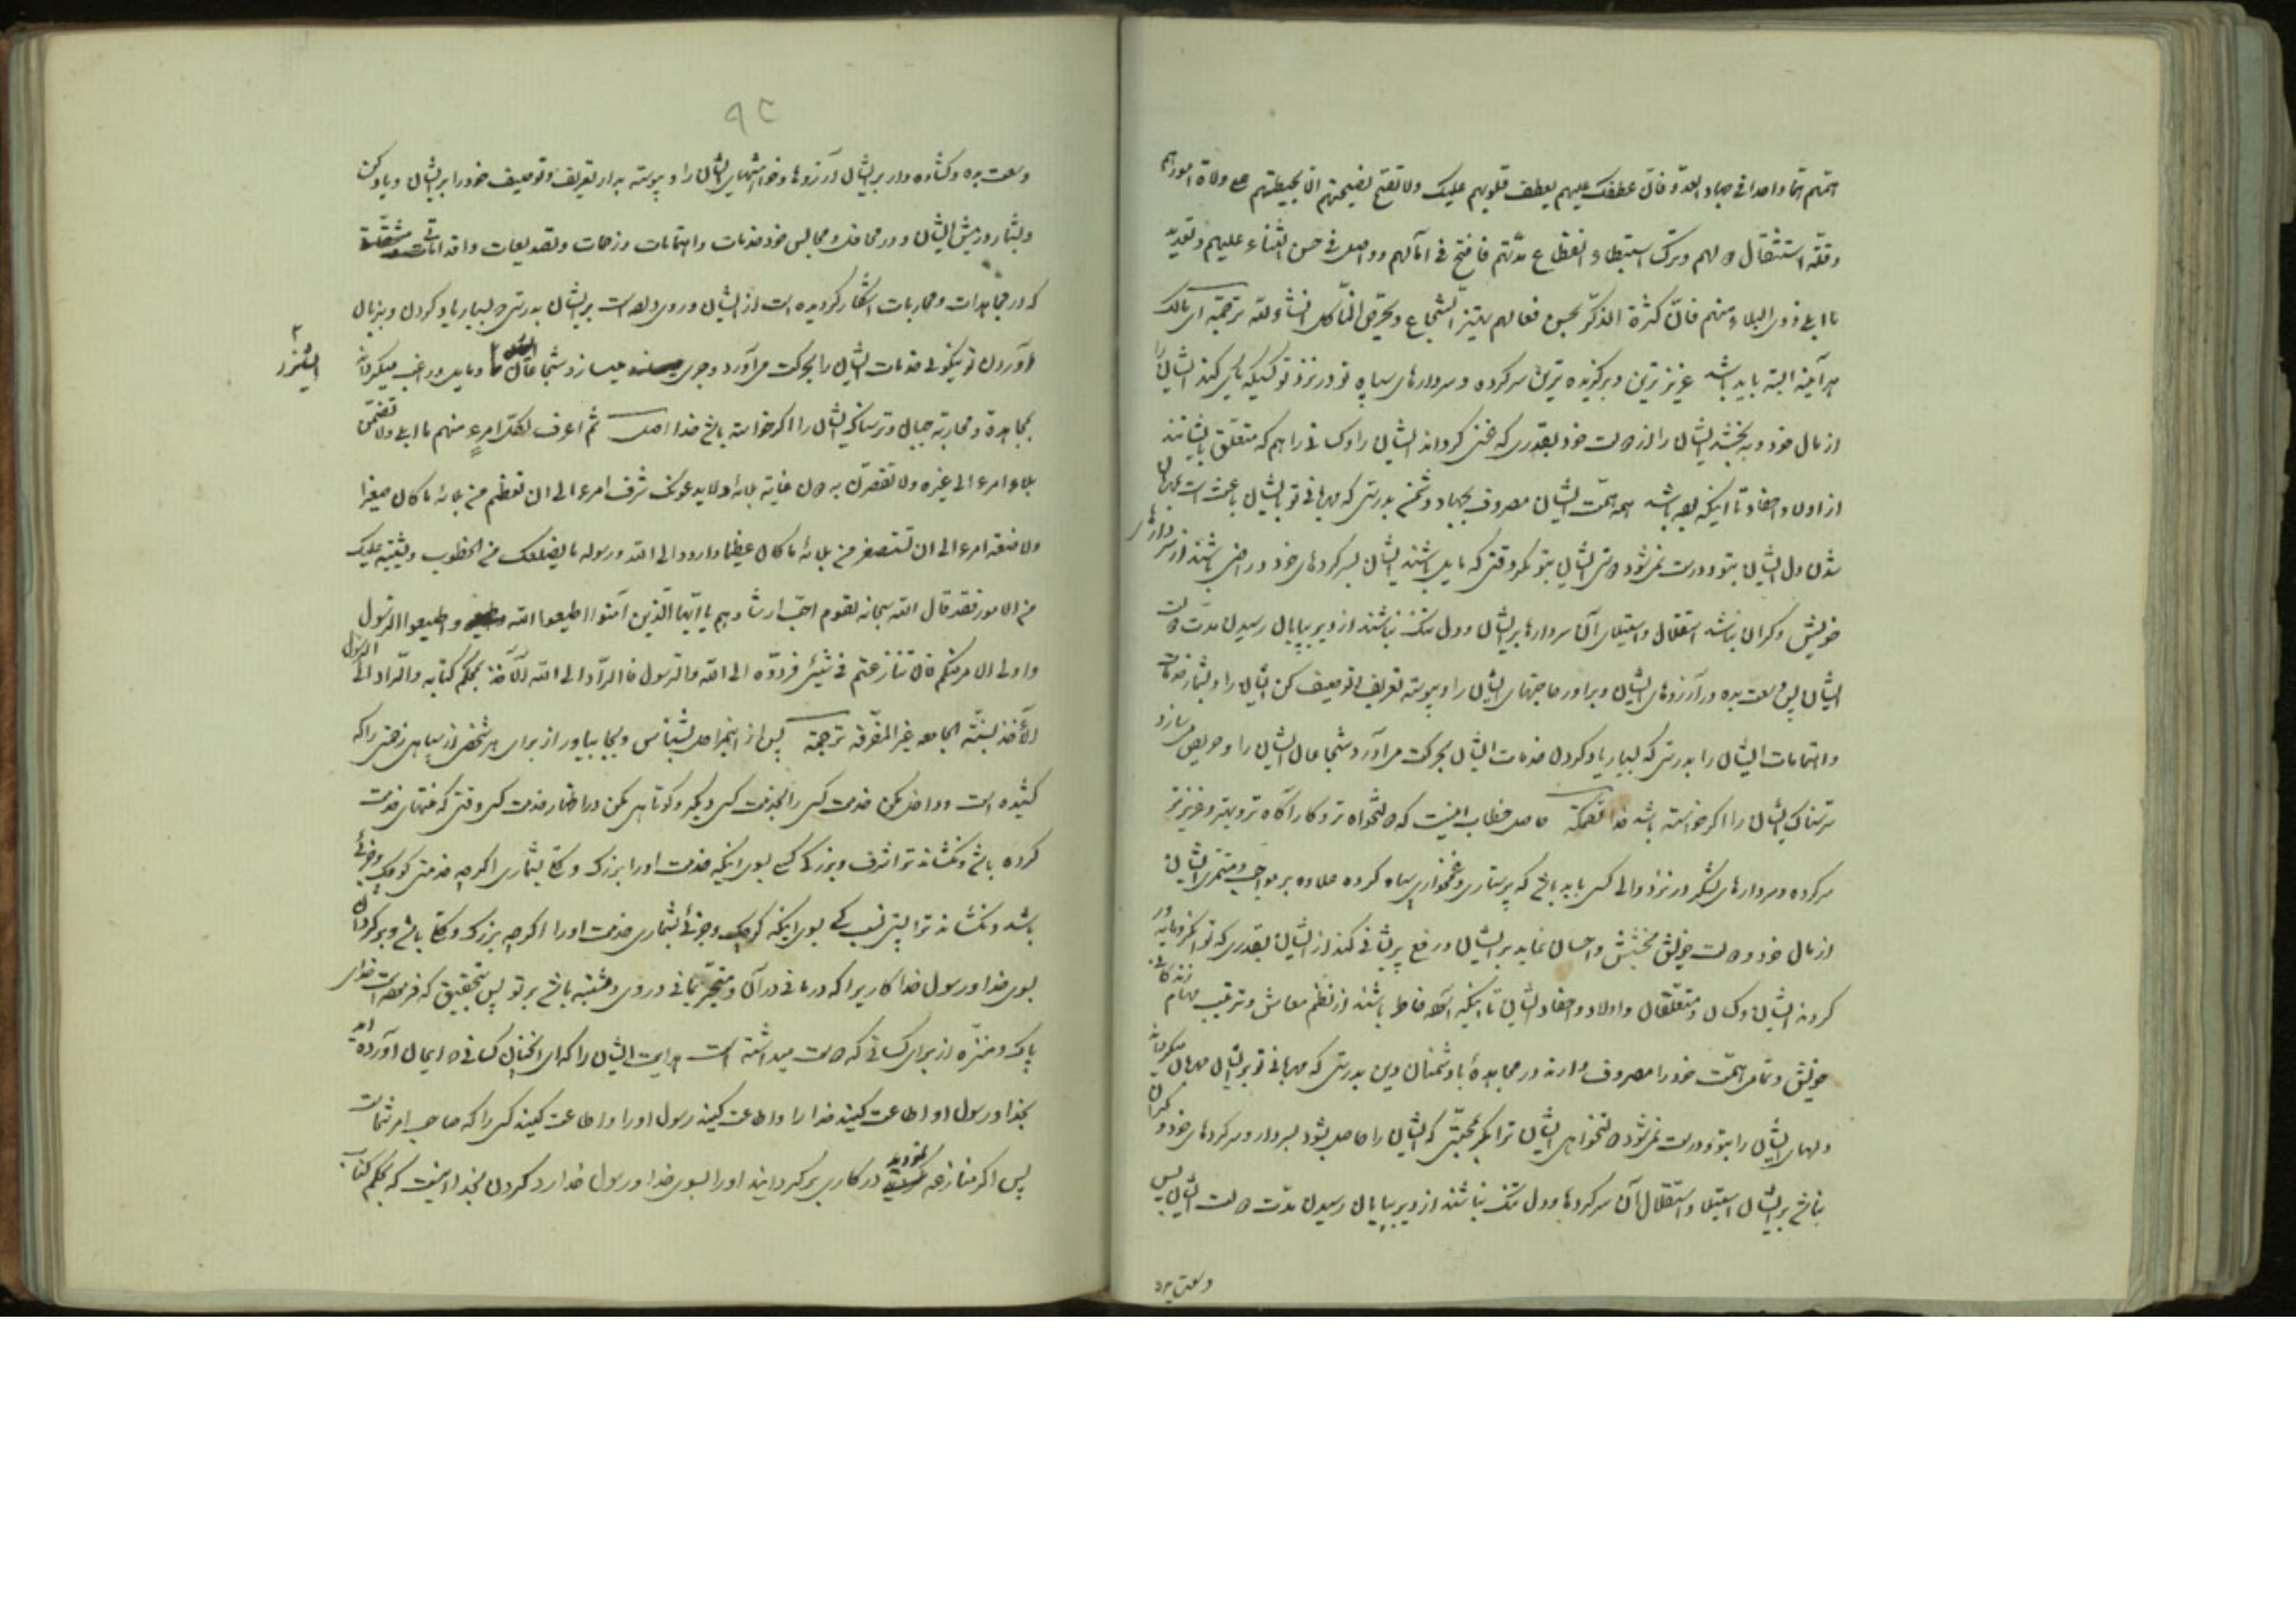 همّهم همّا واحدا فی جهاد العدوّ فانّ عطفک علیهم یعطف قلوبهم علیک ولا تصحّ نصیحتهم الا بحیطتهم علی ولاة امورهم
وقلّة استثقال دولهم وترک استبطاء انقطاع مدّتهم فافسح فی آمالهم وواصل فی حسن الثناء علیهم وتعدید
ما ابلی ذوی البلاء منهم فانّ کثرة الذکر بحسن فعالهم تهزّ الشجاع وتحرّض الناکل انشاء الله ترجمة ای مالک
هرآینه البته باید باشد عزیزترین و برکزیده ترین سرکرده و سردارهای سپاه تو در نزد تو کسیکه یاری کند ایشان را
از مال خود و به بخشد ایشان را از دولت خود بقدری که غنی کرداند ایشان را و کسانی را هم که متعلق بایشانند
از اولاد و احفاد تا اینکه بوده باشد همه همّت ایشان مصروف بجهاد دشمن بدرستی که مهربانی تو بایشان باعث است مهربان
شدن دل ایشان بتو و درست نمی شود دوستی ایشان بتو مکر وقتی که مایل باشند ایشان بسرکردهای خود و راضی باشند از سردارهای
خویش و کران نباشد استقلال و استیلای آن سردارها بر ایشان و دل تنک نباشند از دیر بپایان رسیدن مدّت دولت
ایشان پس وسعت بده در آرزوهای ایشان و براور حاجتهای ایشان را و پیوسته تعریف و توصیف کن ایشان را و بشمار خدمات
و اهتمامات ایشان را بدرستی که بسیار یاد کردن خدمات ایشان بحرکت می آورد شجاعان ایشان را و حریص می سازد
ترسناک ایشان را اکر خواسته باشد خدا حاصل خطاب اینست که دولتخواه تر و کارآکاه تر و بهتر و عزیزتر
سرکرده و سردارهای لشکر در نزد والی کسی باید باشد که پرستاری و غمخواری سپاه کرده علاوه بر مواجب و مستمری ایشان
از مال خود و دولت خویش بخشش و احسان نماید بر ایشان و رفع پریشانی کند از ایشان بقدری که توانکر و مایه ور
کردند ایشان و کسان و متعلقان و اولاد و احفاد ایشان تا اینکه آسوده خاطر باشند از نظم معاش و ترتیب مهام زندکانی
خویش و تمامی همّت خود را مصروف دارند در مجاهدهٔ با دشمنان دین بدرستی که مهربانی تو بر ایشان مهربان میکرداند
دلهای ایشان را بتو و درست نمی شود دولتخواهی ایشان ترا مکر بمحبّتی که ایشان را حاصل بشود بسردار و سرکردهای خود و کران
نباشد بر ایشان استیلا و استقلال آن سرکردها و دل تنک نباشند از دیر بپایان رسیدن مدّت دولت ایشان پس
وسعت بده
٩٢
وسعت بده و کشاده دار بر ایشان آرزوها و خواهشهای ایشان را و پیوسته بدار تعریف و توصیف خود را بر ایشان و یاد کن
و بشمار در پیش ایشان و در محافل و مجالس خود خدمات و اهتمامات و زحمات و تصدیعات و اقدامات
که در مجاهدات و محاربات آشکار کردیده است از ایشان و روی داده است بر ایشان بدرستی که بسیار یاد کردن و بزبان
آوردن تو نیکوئی خدمات ایشان را بحرکت می آورد و جری میسازد شجاعان و مایل و راغب میکرداند
ایشانرا
بمجاهده و محاربه جبان و ترسناک ایشان را اکر خواسته باشد خدا اصل ثم اعرف لکل امرء منهم ما ابلی ولا تضمّنّ
بلاء امرء الی غیره ولا تقصّرنّ به دون غایة بلائه ولا یدعونّک شرف امرء الی ان تعظم من بلائه ما کان صغیرا
ولا ضعة امرء الی ان تستصغر من بلائه ما کان عظیما واردد الی الله ورسوله ما یضلعک من الخطوب ویشتبه علیک
من الامور فقد قال الله سبحانه لقوم احبّ ارشادهم یا ایّها الذین آمنوا اطیعوا الله واطیعوا الرسول
واولی الامر منکم فان تنازعتم فی شیئ فردّوه الی الله والرسول فالرادّ الی الله الآخذ بمحکم کتابه والرادّ الی الرسول
الآخذ بسنّته الجامعه غیر المفرّقه ترجمة پس از این بشناس و بجا بیاور از برای هر شخصی از سپاهی زحمتی را که
کشیده است و داخل مکن خدمت کسی را بخدمت کسی دیکر و کوتاهی مکن در اظهار خدمت کسی وقتی که منتهای خدمت
کرده باشد و نکشاند ترا شرف و بزرکی کسی بسوی اینکه خدمت اورا بزرک و کلی بشماری اکرچه خدمتی کوچک و جزئی
باشد و نکشاند ترا پستی نسب کسی بسوی اینکه کوچک و جزئی بشماری خدمت اورا اکرچه بزرک و کلی باشد و برکردان
بسوی خدا و رسول خدا کاریرا که درمانی در آن و متحیّر بمانی در وی و مشتبه باشد بر تو پس بتحقیق که فرموده است خدای
پاک و منزّه از برای کسانی که دوست میداشته است هدایت ایشان را که ای آنچنان کسانی که ایمان آورده اید
بخدا و رسول او اطاعت کنید خدا را و اطاعت کنید رسول اورا و اطاعت کنید کسی را که صاحب امر شما است
پس اکر منازعه نمودید در کاری برکردانید اورا بسوی خدا و رسول خدا رد کردن بخدا اینست که بمحکم کتاب